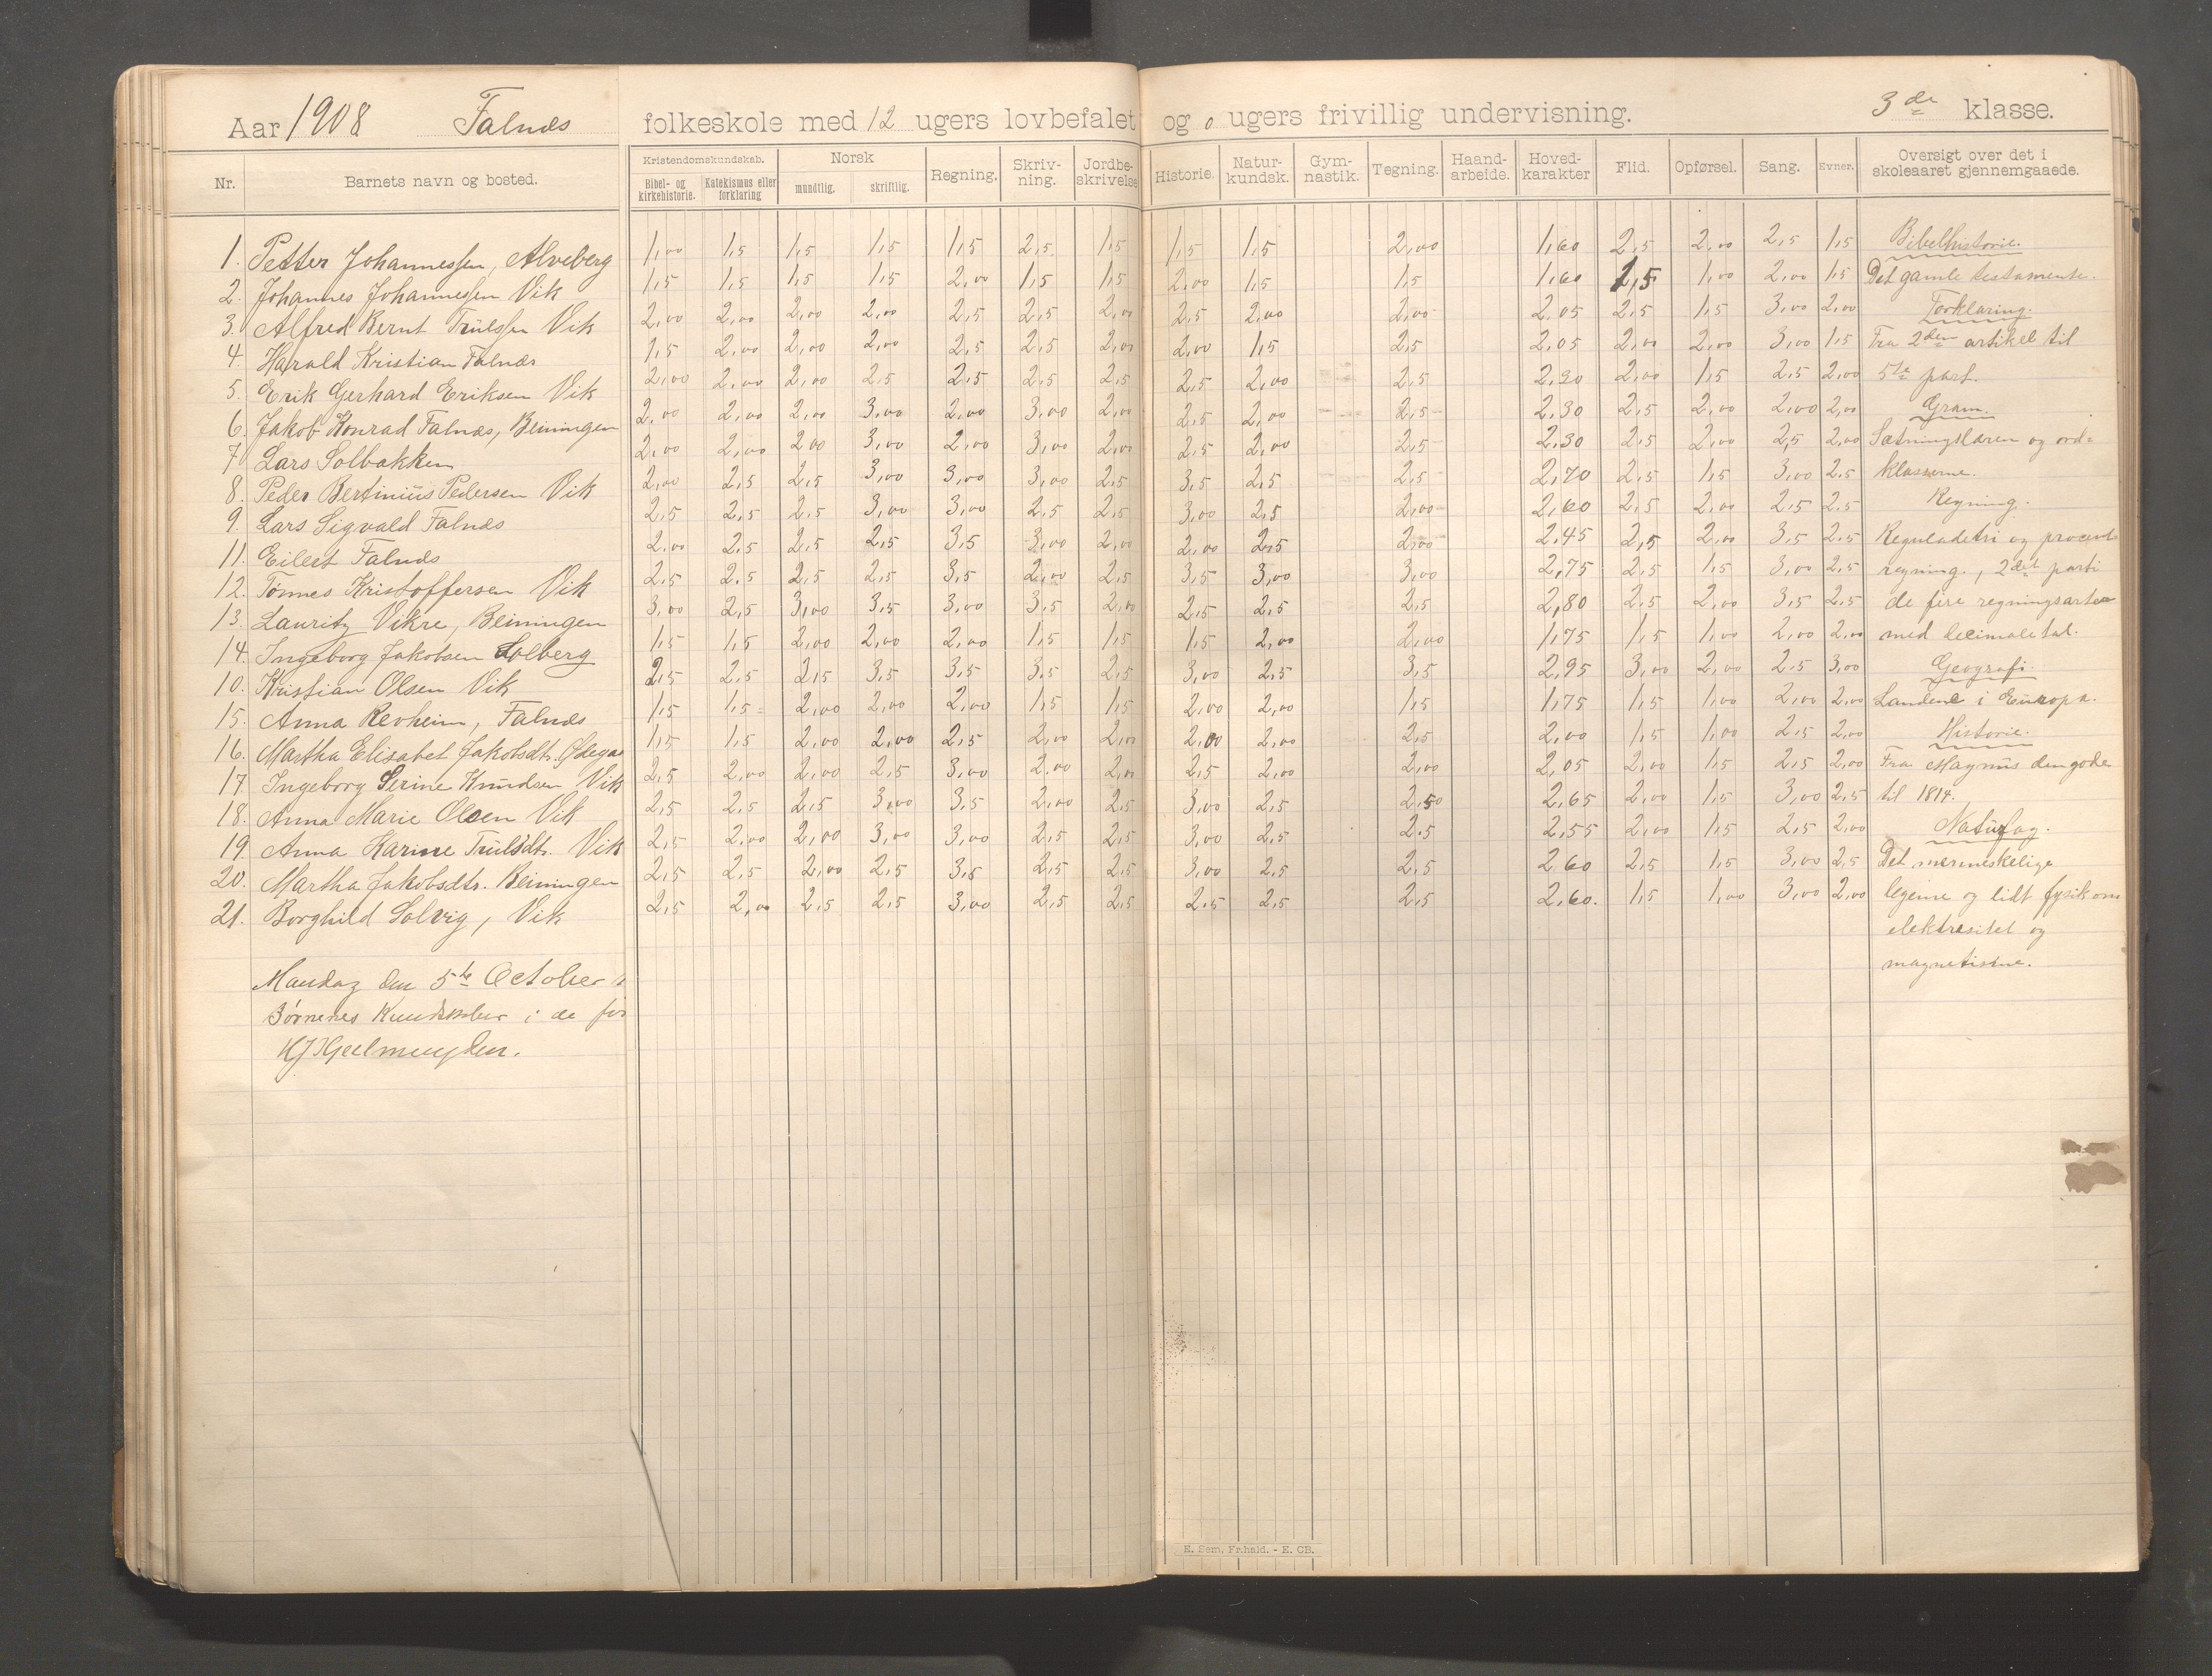 Aar 1908 Falnæs folkeskole med 12 ugers lovbefalet og 0 ugers frivillig undervisning. 3de klasse.
Nr. Barnets navn og bosted. Kristendomskundskab. Bibel- og kirkehistorie. Katekismus eller forklaring Norsk mundtlig. skriftlig. Regning. Skriv- ning. Jordbe- skrivelse Historie. Natur- kundsk. Gym- nastik. Tegning. Haand- arbeide. Hoved- karakter Flid. Opførsel. Sang. Evner. Oversigt over det i skoleaaret gjennemgaaede.
1. Petter Johannessen, Alveberg 1,00 1,5 1,5 1,5 1,5 2,5 1,5 1,5 1,5 2,00 1,60 2,5 2,00 2,5 1,5 Bibelhistorie.
2. Johannes Johannessen Vik 1,5 1,5 1,5 1,5 2,00 1,5 1,5 2,00 1,5 1,5 1,60 1,5 1,00 2,00 1,5 Det gamle testamente.
3. Alfred Bernt Trulssen Vik 2,00 2,00 2,00 2,00 2,5 2,5 2,00 2,5 2,00 2,00 2,05 2,5 1,5 3,00 2,00 Forklaring.
4. Harald Kristian Falnæs 1,5 2,00 2,00 2,00 2,5 2,5 2,00 2,00 1,5 2,5 2,05 2,00 2,00 3,00 1,5 Fra 2den artikel til
5. Erik Gerhard Eriksen Vik 2,00 2,00 2,00 2,5 2,5 2,5 2,5 2,5 2,00 2,5 2,20 2,00 1,5 2,5 2,00 5te part.
6. Jakob Konrad Falnæs, Beiningen 2,00 2,00 2,00 3,00 2,00 3,00 2,00 2,5 2,00 2,5 2,30 2,5 2,00 2,00 2,00 Gram.
7 Lars Solbakken 2,00 2,00 2,00 3,00 2,00 3,00 2,00 2,5 2,00 2,5 2,30 2,5 2,00 2,5 2,00 Sætningslæren og ord-
8. Peder Bertinius Pedersen Vik 2,00 2,5 2,5 3,00 3,00 3,00 2,5 3,5 2,5 2,5 2,70 2,5 1,5 3,00 2,5 klasserne.
9. Lars Sigvald Falnæs 2,5 2,5 2,5 3,00 3,00 2,5 2,5 3,00 2,5 2,00 2,60 2,5 2,00 2,5 2,5 Regning.
11. Eilert Falnæs 2,00 2,5 2,5 2,5 3,5 3,00 2,00 2,00 2,5 2,00 2,45 2,5 2,00 3,5 2,5 Reguladetri og procent
12. Tønnes Kristoffersen Vik 2,5 2,5 2,5 2,5 3,5 2,00 2,5 3,5 3,00 3,00 2,75 2,5 1,5 3,00 2,5 regning, 2det parti
13. Lauritz Vikre, Beiningen 3,00 2,5 3,00 3,5 3,00 3,5 2,00 2,5 2,5 2,5 2,80 2,5 2,00 3,5 2,5 de fire regningsarter
14. Ingeborg Jakobsen Solberg 1,5 1,5 2,00 2,00 2,00 1,5 1,5 1,5 2,00 2,00 1,75 1,5 1,00 2,00 2,00 med decimaltal.
10. Kristian Olsen Vik 2,5 2,5 2,5 3,5 3,5 3,5 2,5 3,00 2,5 3,5 2,95 3,00 2,00 2,5 3,00 Geografi.
15. Anna Revheim, Falnæs 1,5 1,5 2,00 2,00 2,00 1,5 1,5 2,00 2,00 1,5 1,75 1,5 1,00 2,00 2,00 Landene i Europa.
16. Martha Elisabet Jakobsdtr. Ødega 1,5 1,5 2,00 2,00 2,5 2,00 2,00 2,00 2,00 2,5 2,00 1,5 1,00 2,5 2,00 Historie.
17. Ingeborg Serine Knudsen Vik 2,5 2,00 2,00 2,5 3,00 2,00 2,00 2,5 2,00 2,00 2,05 2,00 1,5 2,5 2,00 Fra Magnus den gode
18. Anna Marie Olsen Vik 2,5 2,5 2,5 3,00 3,5 2,00 2,5 3,00 2,5 2,50 2,65 2,00 1,5 3,00 2,5 til 1814.
19. Anna Karine Trulsdtr. Vik 2,5 2,00 2,00 3,00 3,00 2,5 2,5 3,00 2,5 2,5 2,55 2,00 1,5 2,5 2,00 Naturfag.
20. Martha Jakobsdtr. Beiningen 2,5 2,5 2,00 2,5 3,5 2,5 2,5 3,00 2,5 2,5 2,60 2,5 1,5 3,00 2,5 Det menneskelige
21. Borghild Solvig, Vik 2,5 2,00 2,5 2,5 3,00 2,5 2,5 2,5 2,5 2,5 2,60. 1,5 1,00 3,00 2,00 legeme og lidt fysik om
elektresitet og
magnetisme.
Mandag den 5te October
Børnenes Kundskaber i de for
HJGeelmuyden.
E. Sem, Fr.hald. - E. CB.